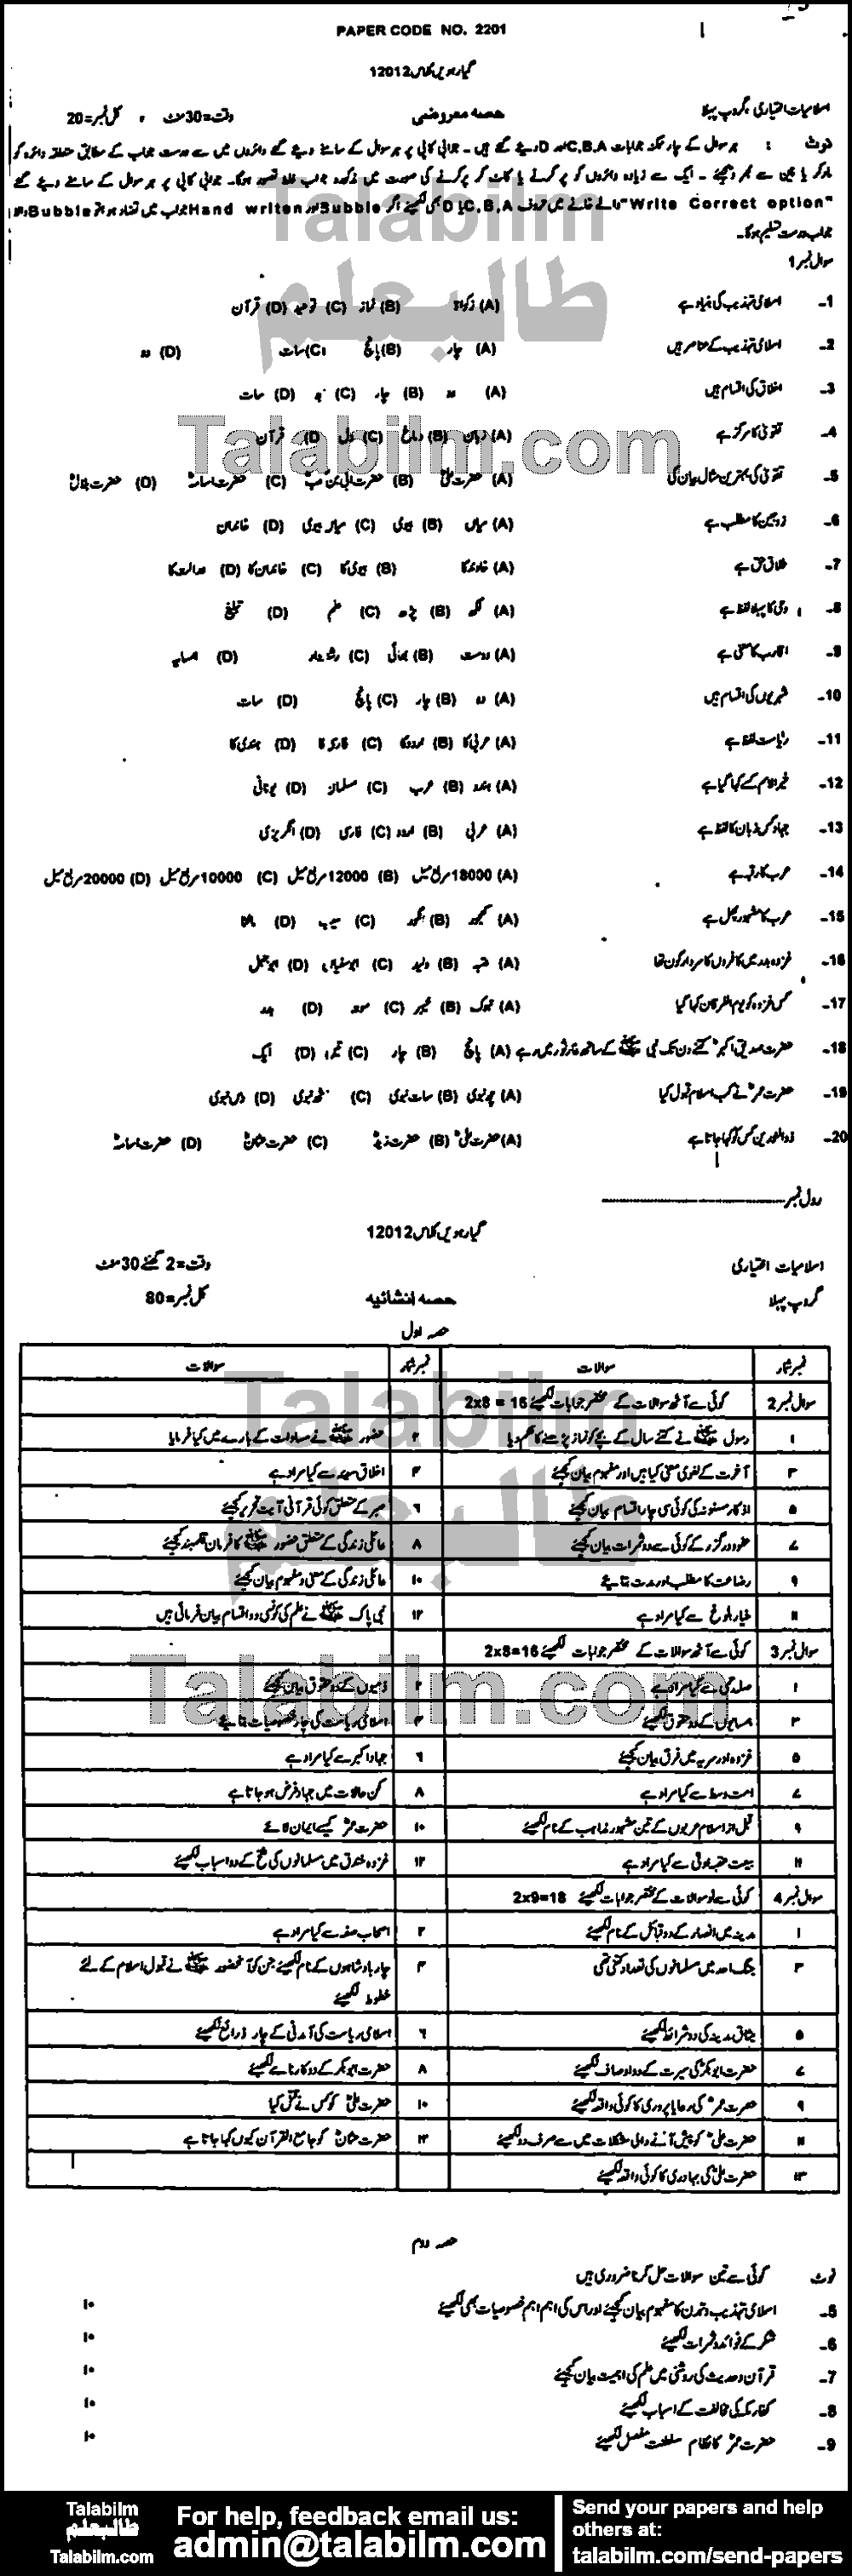 PAPER CODE NO. 2201
گیارہویں کلاس 12012
اسلامیات اختیاری گروپ پہلا حصہ معروضی وقت=30منٹ کل نمبر=20
نوٹ : ہر سوال کے چار ممکنہ جوابات C,B,A اور D دیے گئے ہیں۔ جوابی کاپی پر ہر سوال کے سامنے دیے گئے دائروں میں سے درست جواب کے مطابق متعلقہ دائرہ کو
مارکر یا پین سے بھر دیجئے۔ ایک سے زیادہ دائروں کو پر کرنے یا کاٹ کر پر کرنے کی صورت میں مذکورہ جواب غلط تصور ہوگا۔ جوابی کاپی پر ہر سوال کے سامنے دیے گئے
"Write Correct option" والے خانے میں حروف C,B,A یا D بھی لکھیئے اگر Bubble اور Hand writen جواب میں تضاد ہو تو Bubble والا
جواب درست تسلیم ہوگا۔
سوال نمبر 1
1- اسلامی تہذیب کی بنیاد ہے (A) زکواۃ (B) نماز (C) توحید (D) قرآن
2- اسلامی تہذیب کے عناصر ہیں (A) چار (B) پانچ (C) سات (D) دو
3- اخلاق کی اقسام ہیں (A) دو (B) چار (C) چھ (D) سات
4- تقویٰ کا مرکز ہے (A) زبان (B) دماغ (C) دل (D) قرآن
5- تقویٰ کی بہترین مثال بیان کی (A) حضرت علیؓ (B) حضرت ابی بن کعبؓ (C) حضرت اسامہؓ (D) حضرت بلالؓ
6- زوجین کا مطلب ہے (A) میاں (B) بیوی (C) میاں بیوی (D) خاندان
7- طلاق حق ہے (A) خاوند کا (B) بیوی کا (C) خاندان کا (D) عدالت کا
8- وحی کا پہلا لفظ ہے (A) لکھ (B) پڑھ (C) علم (D) تبلیغ
9- اقارب کا معنی ہے (A) دوست (B) بھائی (C) رشتہ دار (D) ہمسایہ
10- شہریوں کی اقسام ہیں (A) دو (B) چار (C) پانچ (D) سات
11- ریاست لفظ ہے (A) عربی کا (B) اردو کا (C) فارسی کا (D) ہندی کا
12- خیر الامم کسے کہا گیا ہے (A) ہندو (B) عرب (C) مسلمان (D) یونانی
13- جہاد کس زبان کا لفظ ہے (A) عربی (B) اردو (C) فارسی (D) انگریزی
14- عرب کا رقبہ ہے (A) 18000 مربع میل (B) 12000 مربع میل (C) 10000 مربع میل (D) 20000 مربع میل
15- عرب کا مشہور پھل ہے (A) کھجور (B) انگور (C) سیب (D)
16- غزوہ بدر میں کافروں کا سردار کون تھا (A) عتبہ (B) ولید (C) ابوسفیان (D) ابوجہل
17- کس غزوہ کو یوم الفرقان کہا گیا (A) تبوک (B) خیبر (C) موتہ (D) بدر
18- حضرت صدیق اکبرؓ کتنے دن تک نبی ﷺ کے ساتھ غار ثور میں رہے (A) پانچ (B) چار (C) تین (D) ایک
19- حضرت عمرؓ نے کب اسلام قبول کیا (A) چھ نبوی (B) سات نبوی (C) آٹھ نبوی (D) دس نبوی
20- ذوالنورین کس کو کہا جاتا ہے (A) حضرت علیؓ (B) حضرت زیدؓ (C) حضرت عثمانؓ (D) حضرت اسامہؓ
رول نمبر
گیارہویں کلاس 12012
اسلامیات اختیاری وقت=2 گھنٹے 30منٹ
گروپ پہلا حصہ انشائیہ کل نمبر=80
حصہ اول
نمبر شمار سوالات نمبر شمار سوالات
سوال نمبر 2 کوئی سے آٹھ سوالات کے مختصر جوابات لکھیئے 2x8 = 16
۱ رسول ﷺ نے کتنے سال کے بچے کو نماز پڑھنے کا حکم دیا ۲ حضور ﷺ نے مساوات کے بارے میں کیا فرمایا
۳ آخرت کے لغوی معنی کیا ہیں اور مفہوم بیان کیجئے ۴ اخلاق سیئہ سے کیا مراد ہے
۵ اذکار مسنونہ کی کوئی سی چار اقسام بیان کیجئے ۶ صبر کے متعلق کوئی قرآنی آیت تحریر کیجئے
۷ عفو و درگزر کے کوئی سے دو ثمرات بیان کیجئے ۸ عائلی زندگی کے متعلق حضور ﷺ کا فرمان قلمبند کیجئے
۹ رضاعت کا مطلب اور مدت بتائیے ۱۰ عائلی زندگی کے معنی و مفہوم بیان کیجئے
۱۱ خیار بلوغ سے کیا مراد ہے ۱۲ نبی پاک ﷺ نے علم کی کونسی دو اقسام بیان فرمائی ہیں
سوال نمبر 3 کوئی سے آٹھ سوالات کے مختصر جوابات لکھیئے 2x8=16
۱ صلہ رحمی سے کیا مراد ہے ۲ ذمیوں کے دو حقوق بیان کیجئے
۳ ہمسایوں کے دو حقوق لکھیئے ۴ اسلامی ریاست کی چار خصوصیات بتائیے
۵ غزوہ اور سریہ میں فرق بیان کیجئے ۶ جہاد اکبر سے کیا مراد ہے
۷ امت وسط سے کیا مراد ہے ۸ کن حالات میں جہاد فرض ہو جاتا ہے
۹ قبل از اسلام عربوں کے تین مشہور مذاہب کے نام لکھیئے ۱۰ حضرت عمرؓ کیسے ایمان لائے
۱۱ بیعت عقبہ اولیٰ سے کیا مراد ہے ۱۲ غزوہ خندق میں مسلمانوں کی فتح کے دو اسباب لکھیئے
سوال نمبر 4 کوئی سے نو سوالات کے مختصر جوابات لکھیئے 2x9=18
۱ مدینہ میں انصار کے دو قبائل کے نام لکھیئے ۲ اصحاب صفہ سے کیا مراد ہے
۳ جنگ احد میں مسلمانوں کی تعداد کتنی تھی ۴ چار بادشاہوں کے نام لکھیئے جن کو آنحضور ﷺ نے قبول اسلام کے لئے
خطوط لکھیئے
۵ میثاق مدینہ کی دو شرائط لکھیئے ۶ اسلامی ریاست کی آمدنی کے چار ذرائع لکھیئے
۷ حضرت ابوبکرؓ کی سیرت کے دو اوصاف لکھیئے ۸ حضرت ابوبکر کے دو کارنامے لکھیئے
۹ حضرت عمرؓ کی رعایا پروری کا کوئی واقعہ لکھیئے ۱۰ حضرت علیؓ کو کس نے قتل کیا
۱۱ حضرت علیؓ کو پیش آنے والی مشکلات میں سے صرف دو لکھیئے ۱۲ حضرت عثمانؓ کو جامع القرآن کیوں کہا جاتا ہے
۱۳ حضرت علیؓ کی بہادری کا کوئی واقعہ لکھیئے
حصہ دوم
نوٹ کوئی سے تین سوالات حل کرنا ضروری ہیں
5- اسلامی تہذیب و تمدن کا مفہوم بیان کیجئے اور اس کی اہم اہم خصوصیات بھی لکھیئے ۱۰
6- شکر کے فوائد و ثمرات لکھیئے ۱۰
7- قرآن و حدیث کی روشنی میں علم کی اہمیت بیان کیجئے ۱۰
8- کفار مکہ کی مخالفت کے اسباب لکھیئے ۱۰
9- حضرت عمرؓ کا نظام سلطنت مفصل لکھیئے ۱۰
Talabilm
طالبعلم
Talabilm.com
Talabilm
طالبعلم
Talabilm.com
Talabilm
طالبعلم
Talabilm.com
For help, feedback email us:
admin@talabilm.com
Send your papers and help
others at:
talabilm.com/send-papers